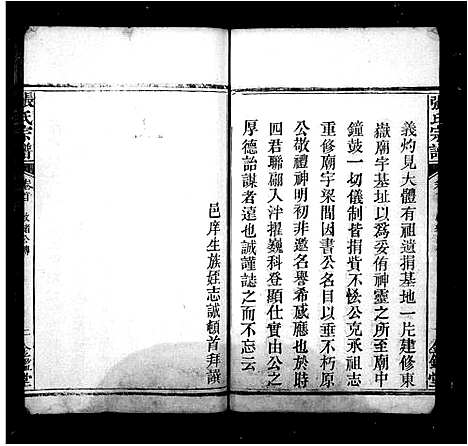 張氏宗譜
義灼見大體有祖遺捐基地一片建修東
嶽廟宇基址以為妥侑神靈之所至廟中
鐘鼓一切儀制皆捐貲不惜公克承祖志
重修廟宇梁間因書公名目以垂不朽原
公敬禮神明初非邀名譽希感應也於時
四君聯翩入泮擢巍科登顯仕實由公之
厚德詒謀者遠也誠謹誌之而不忘云
邑庠生族姪志誠頓首拜譔
張氏宗譜
卷首
公傳
二
金鑑堂